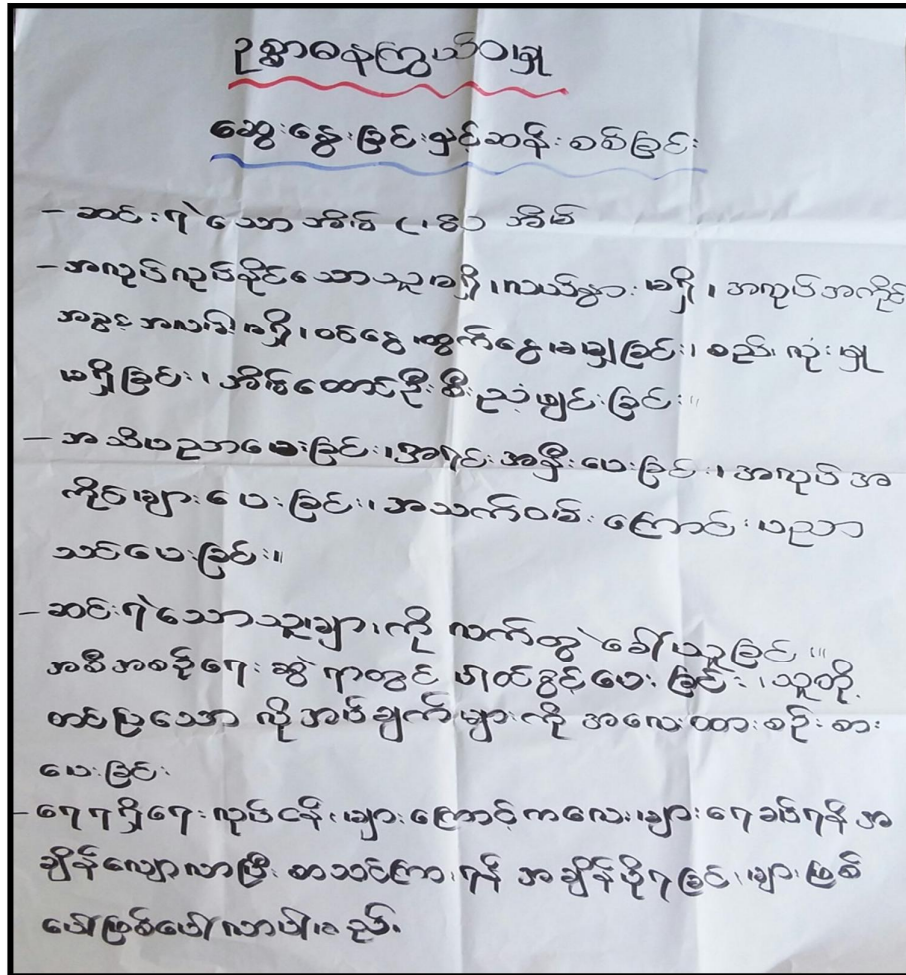 ဥစ္စာဓနကြွယ်ဝမှု
ဆွေးနွေးခြင်းနှင့်ဆန်းစစ်ခြင်း
- ဆင်းရဲသော အိမ် (၊စိ) အိမ်
- အလုပ်လုပ်နိုင်သောသူမရှိ၊လယ်နွားမရှိ၊ အလုပ်အကိုင်
အခွင့်အလမ်းမရှိ၊ဝင်ငွေထွက်ငွေမမျှခြင်း၊ စည်းလုံးမှု
မရှိခြင်း၊ အိမ်ထောင်ဦးစီးညံ့ဖျင်းခြင်း။
- အသိပညာပေးခြင်း၊အရင်းအနှီးပေးခြင်း၊ အလုပ်အ
ကိုင်များပေးခြင်း၊အသက်မွေးဝမ်းကြောင်းပညာ
သင်ပေးခြင်း။
- ဆင်းရဲသောသူများကို လက်တွဲခေါ်ယူခြင်း။
အစီအစဉ်ရေးဆွဲရာတွင် ပါဝင်ခွင့်ပေးခြင်း၊သူတို့
တင်ပြသော လိုအပ်ချက်များကို အလေးထားစဉ်းစား
ပေးခြင်း
- ရေရရှိရေးလုပ်ငန်းများကြောင့်ကလေးများရေခပ်ရန်အ
ချိန်လျော့လာပြီး စာသင်ကြားရန် အချိန်ပိုရခြင်းများဖြစ်
ပေါ်ဖြစ်ပေါ်လာပါသည်။